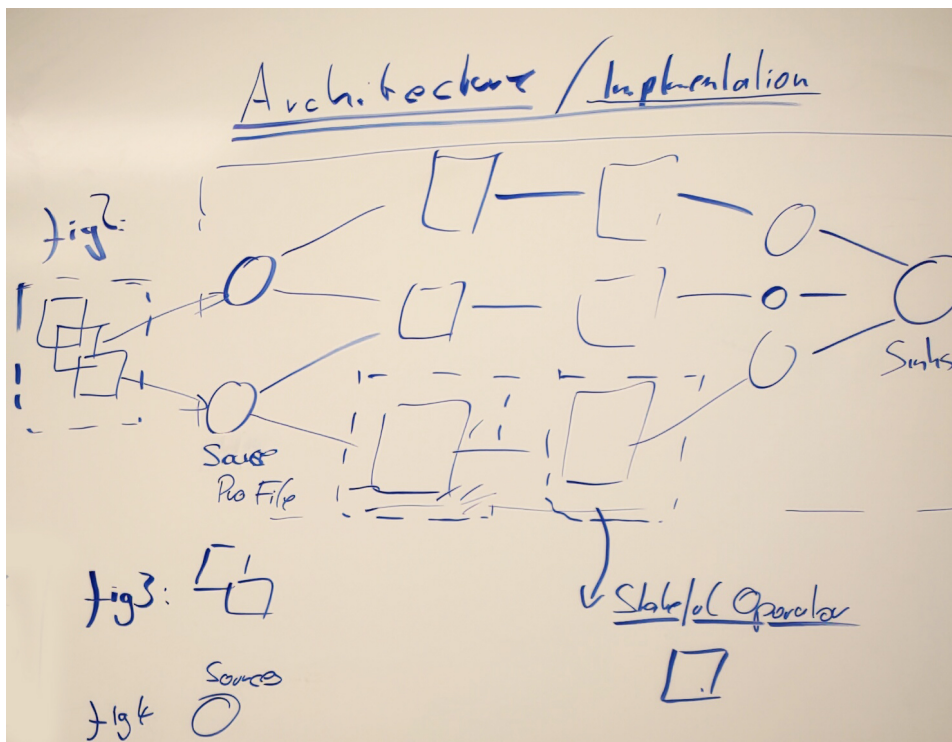 Architecture / Implmentation
fig2:
Sinks
Source
Pro File
fig3:
Stateful Operator
Sources
fig4